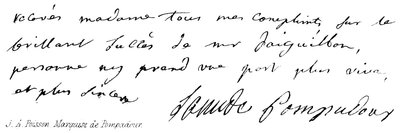 recevés madame tous mes compliments sur le
brillant succès de mr daiguillon,
personne ny prend une part plus vive,
et plus sincere
la mise de Pompadour
J. A. Poisson Marquise de Pompadour.